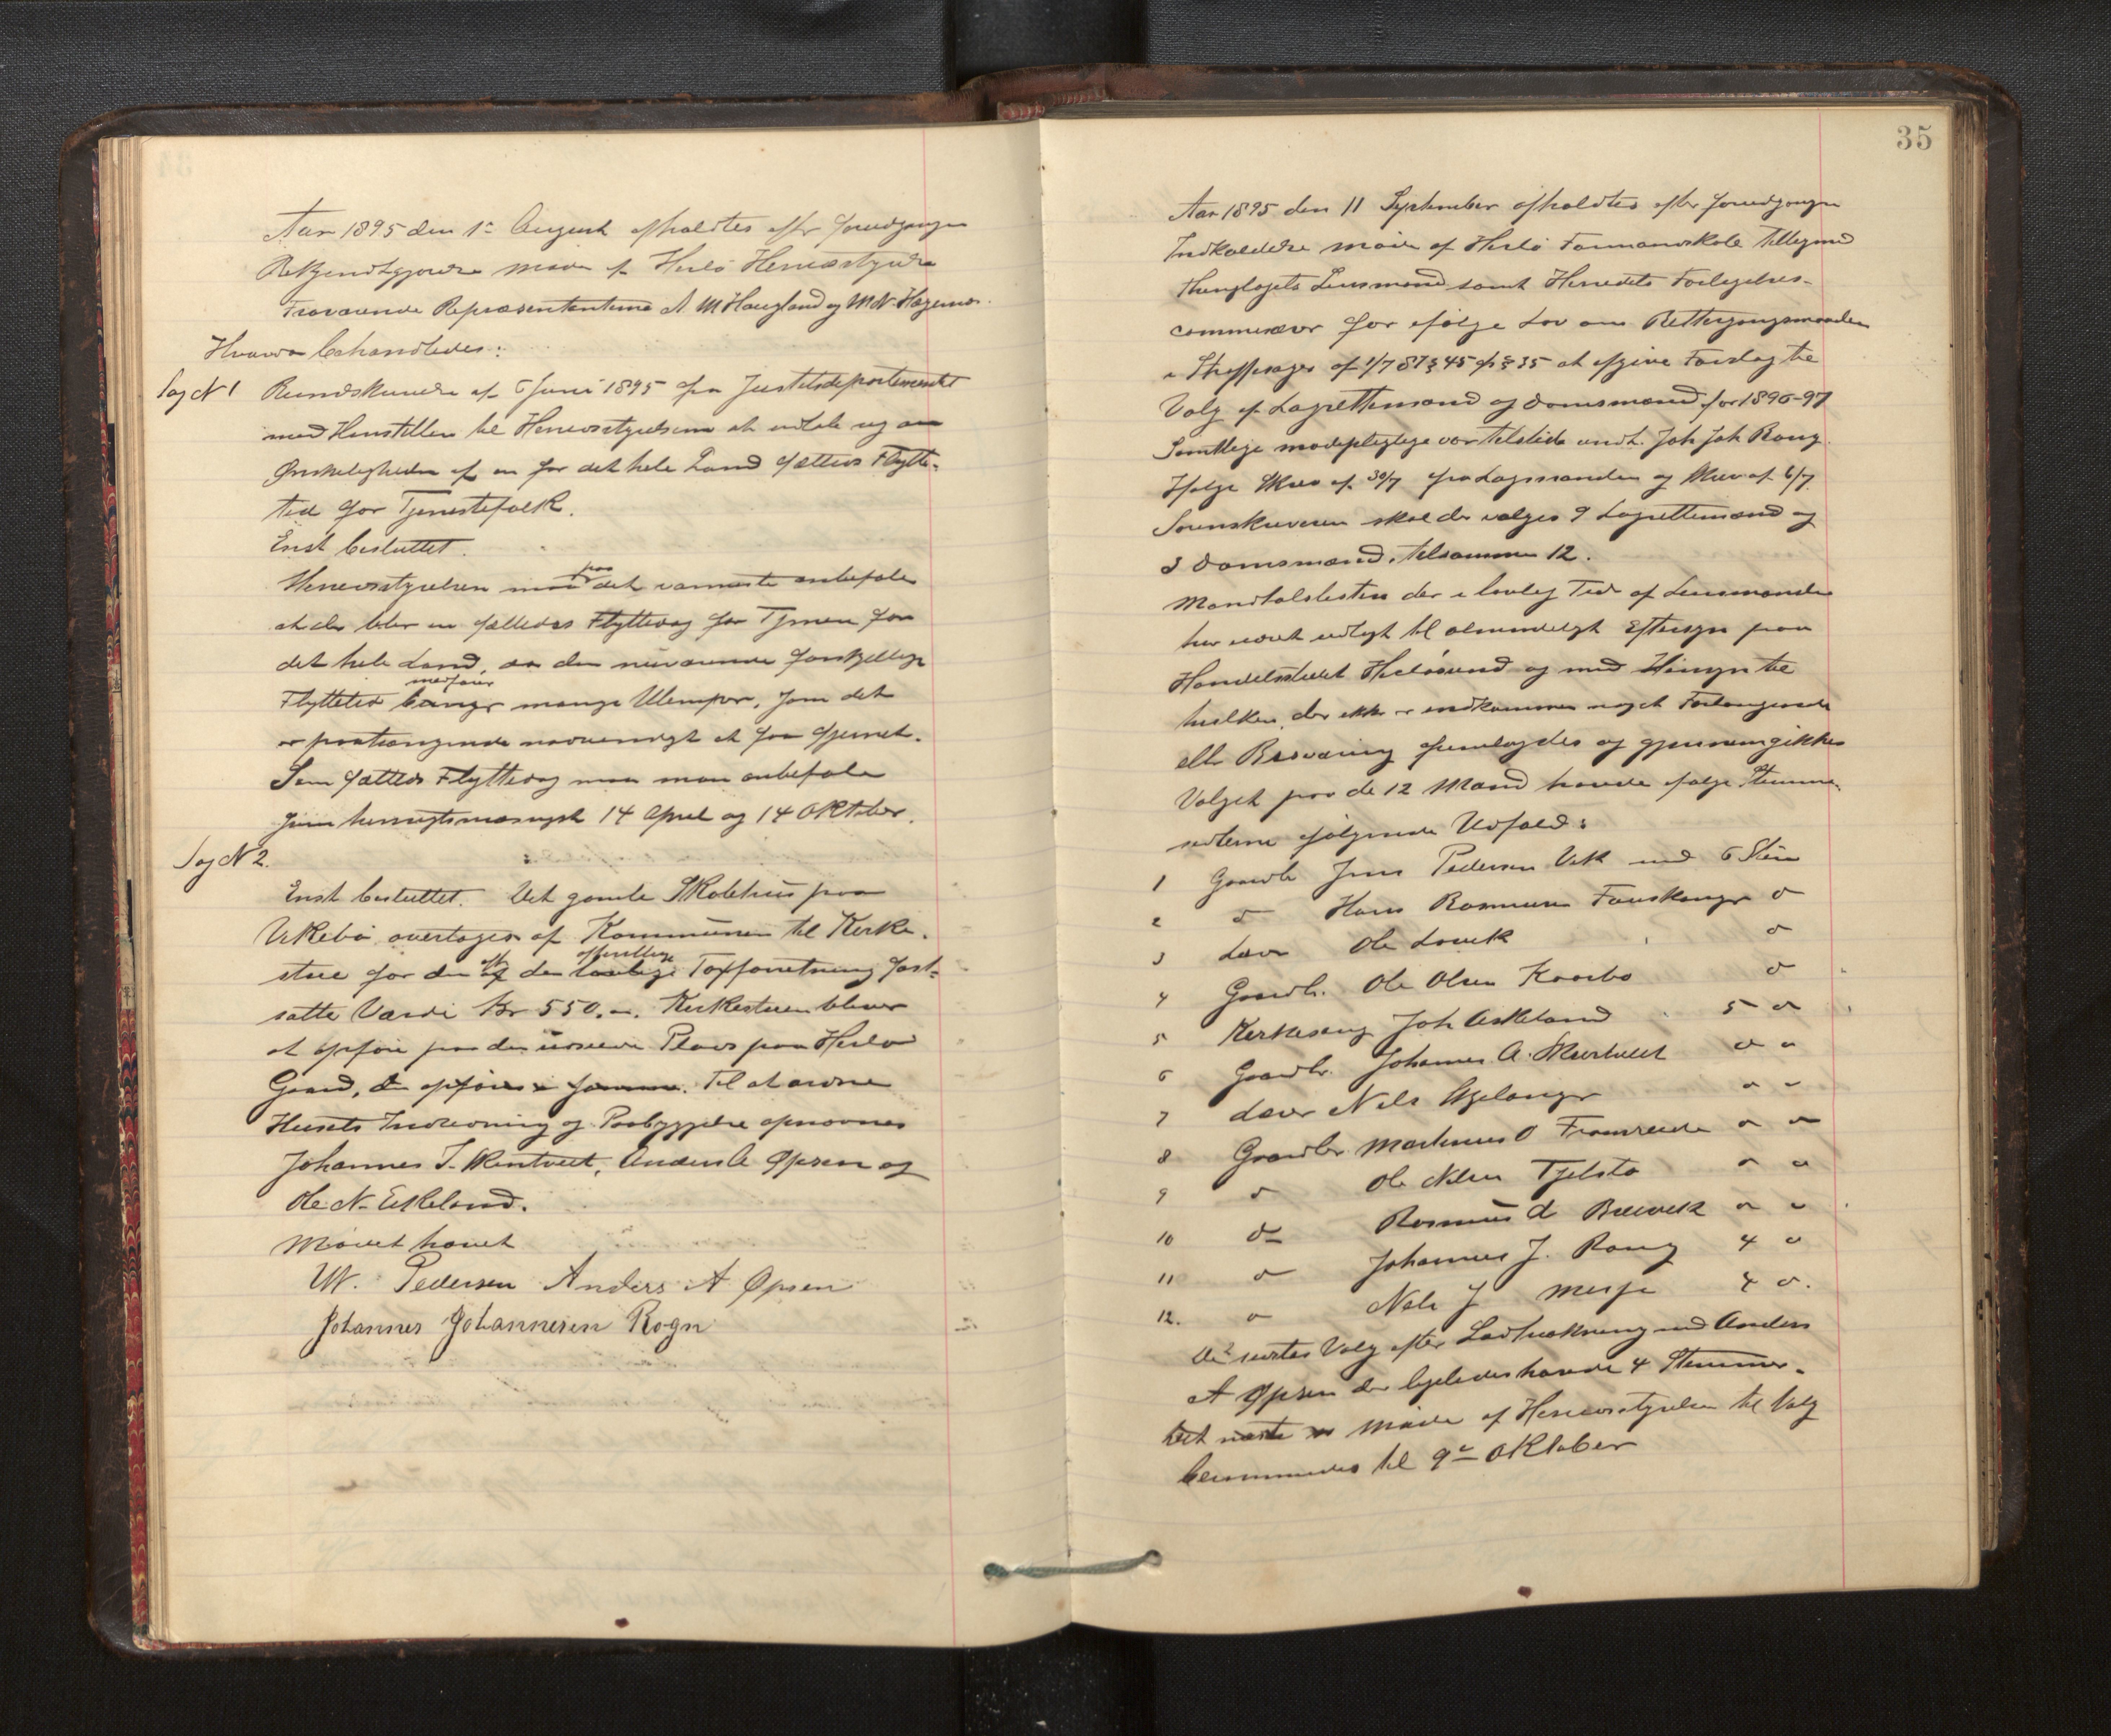 Aar 1895 den 1ste August afholdtes efter foregangen
Bekjendtgjørelse møde af Herlø Herredstyrelse
Fraværende Repræsentanterne A M Haugland og M N Hagenes.
Hvorda behandledes:
Sag N 1 Rundskrivelse af 6 Juni 1895 fra Justitsdepartementet
med Henstillen til Herredsstyrelserne at udtale sig om
Ønskeligheden af en for det hele Land fælleds Flytte-
tid for Tjenestefolk.
Enst besluttet.
Herredsstyrelsen maa paa det varmeste anbefale
at der blir en fælleds Flyttedag for Tjenere for
det hele Land, da den nuværende forskjellige
Flyttetid medfører mange Ulemper, som det
er paatrængende nødvendigt at faa fjernet.
Som fælleds Flyttedag maa man anbefale
som hensigtsmæssigst 14 April og 14 Oktober.
Sag N 2.
Enst besluttet. Det gamle Skolehus paa
Vikebø overtages af Kommunen til Kirke-
stue for den af den offentlige Taxforretning fast-
satte Værdi Kr 550.-. Kirkestuen bliver
at opføre paa den udseede Plads paa Herlø
Gaard, den opføres i samme. Til at ordne
Husets Indredning og Paabyggelse opnævnes
Johannes J. Skurtveit, Anders A Opsen og
Ole N. Eskeland.
Mødet hævet
W. Pedersen Anders A Opsen
Johannes Johannesen Rogn
35
Aar 1895 den 11 September afholdtes efter foregangen
Indkaldelse møde af Herlø Formandskab tilligemed
Thinglagets Lensmand samt Herredets Forligelses-
commisærer for ifølge Lov om Rettergangsmaaden
i Straffesager af 1/7 87 § 45 jfr § 35 at afgive Forslag til
Valg af Lagrettemænd og Domsmænd for 1896-97
Samtlige mødepligtige var tilstede undt. Joh Joh Rong.
Ifølge Skriv af 30/7 fra Lagmanden og Skriv af 6/7
Sorenskriveren skal der vælges 9 Lagrettemænd og
3 Domsmænd, tilsammen 12.
Mandtalslisten der i lovlig Tid af Lensmanden
har været udlagt til almindeligt Eftersyn paa
Handelsstedet Herløsund og med Hensyn til
hvilken, der ikke er indkommen noget Forlangende
eller Besværing fremlagdes og gjennemgikkes
Valget paa de 12 Mænd havde ifølge Stemme-
sedlerne følgende Udfald:
1 Gaardb Jens Pedersen Vik med 6 Stem
2 do Hans Rasmusen Fauskanger do
3 Lærer Ole Landvik do
4 Gaardb. Ole Olsen Kaarbø do
5 Kirkesang Joh Askeland 5 do
6 Gaardbr. Johannes A. Skurtveit do do
7 Lærer Nils Uglanger do do
8 Gaardbr Martinus O Fromreide do do
9 do Ole Nilsen Tjelstø do do
10 do Rasmus d Breivik do do
11 do Johannes J. Rong 4 do
12. do Nils J Misje 4 do.
De 2 sidstes Valg efter Lodtrækning med Anders
A Opsen der ligeledes havde 4 Stemmer.
Det næste Møde af Herredsstyrelsen til Valg
berammedes til 9de Oktober